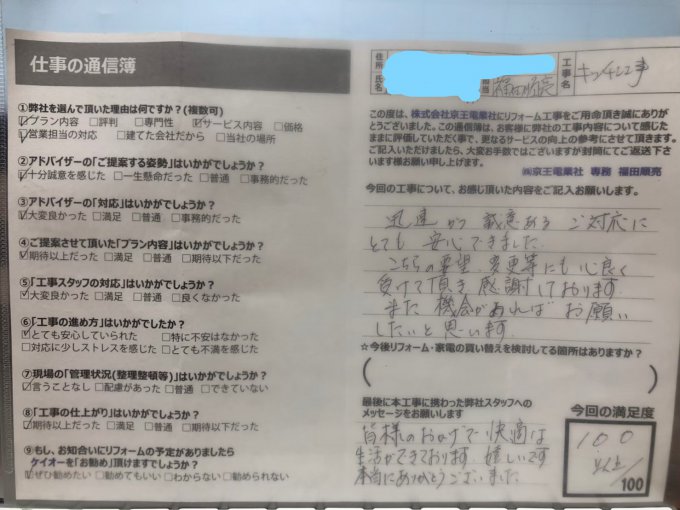 仕事の通信簿
住所
氏名
担当 福田順亮
工事名 キッチン工事
①弊社を選んで頂いた理由は何ですか?(複数可)
☑プラン内容 □評判 □専門性 ☑サービス内容 □価格
☑営業担当の対応 □建てた会社だから □当社の場所
②アドバイザーの「ご提案する姿勢」はいかがでしょうか?
☑十分誠意を感じた □一生懸命だった □普通 □事務的だった
③アドバイザーの「対応」はいかがでしょうか?
☑大変良かった □満足 □普通 □事務的だった
④ご提案させて頂いた「プラン内容」はいかがでしょうか?
☑期待以上だった □満足 □普通 □期待以下だった
⑤「工事スタッフの対応」はいかがでしょうか?
☑大変良かった □満足 □普通 □良くなかった
⑥「工事の進め方」はいかがでしたか?
☑とても安心していられた □特に不安はなかった
□対応に少しストレスを感じた □とても不満を感じた
⑦現場の「管理状況(整理整頓等)」はいかがでしょうか?
☑言うことなし □配慮があった □普通 □できていない
⑧「工事の仕上がり」はいかがでしょうか?
☑期待以上だった □満足 □普通 □期待以下だった
⑨もし、お知合いにリフォームの予定がありましたら
ケイオーを「お勧め」頂けますでしょうか?
☑ぜひ勧めたい □勧めてもいい □わからない □勧められない
この度は、株式会社京王電業社にリフォーム工事をご用命頂き誠にありが
とうございました。この通信簿は、お客様に弊社の工事内容について感じた
ままに評価していただく事で、更なるサービスの向上の参考にさせて頂きます。
ご記入いただけましたら、大変お手数ではございますが封筒にてご返送下さ
います様お願い申し上げます。
㈱京王電業社 専務 福田順亮
今回の工事について、お感じ頂いた内容をご記入お願いします。
迅速かつ誠意あるご対応に
とても安心できました。
こちらの要望、変更等にも心良く
受けて頂き感謝しております
また機会があればお願い
したいと思います
☆今後リフォーム・家電の買い替えを検討してる箇所はありますか?
( )
最後に本工事に携わった弊社スタッフへの
メッセージをお願いします
皆様のおかげで快適な
生活ができております。嬉しいです
本当にありがとうございました。
今回の満足度
100
以上
/100